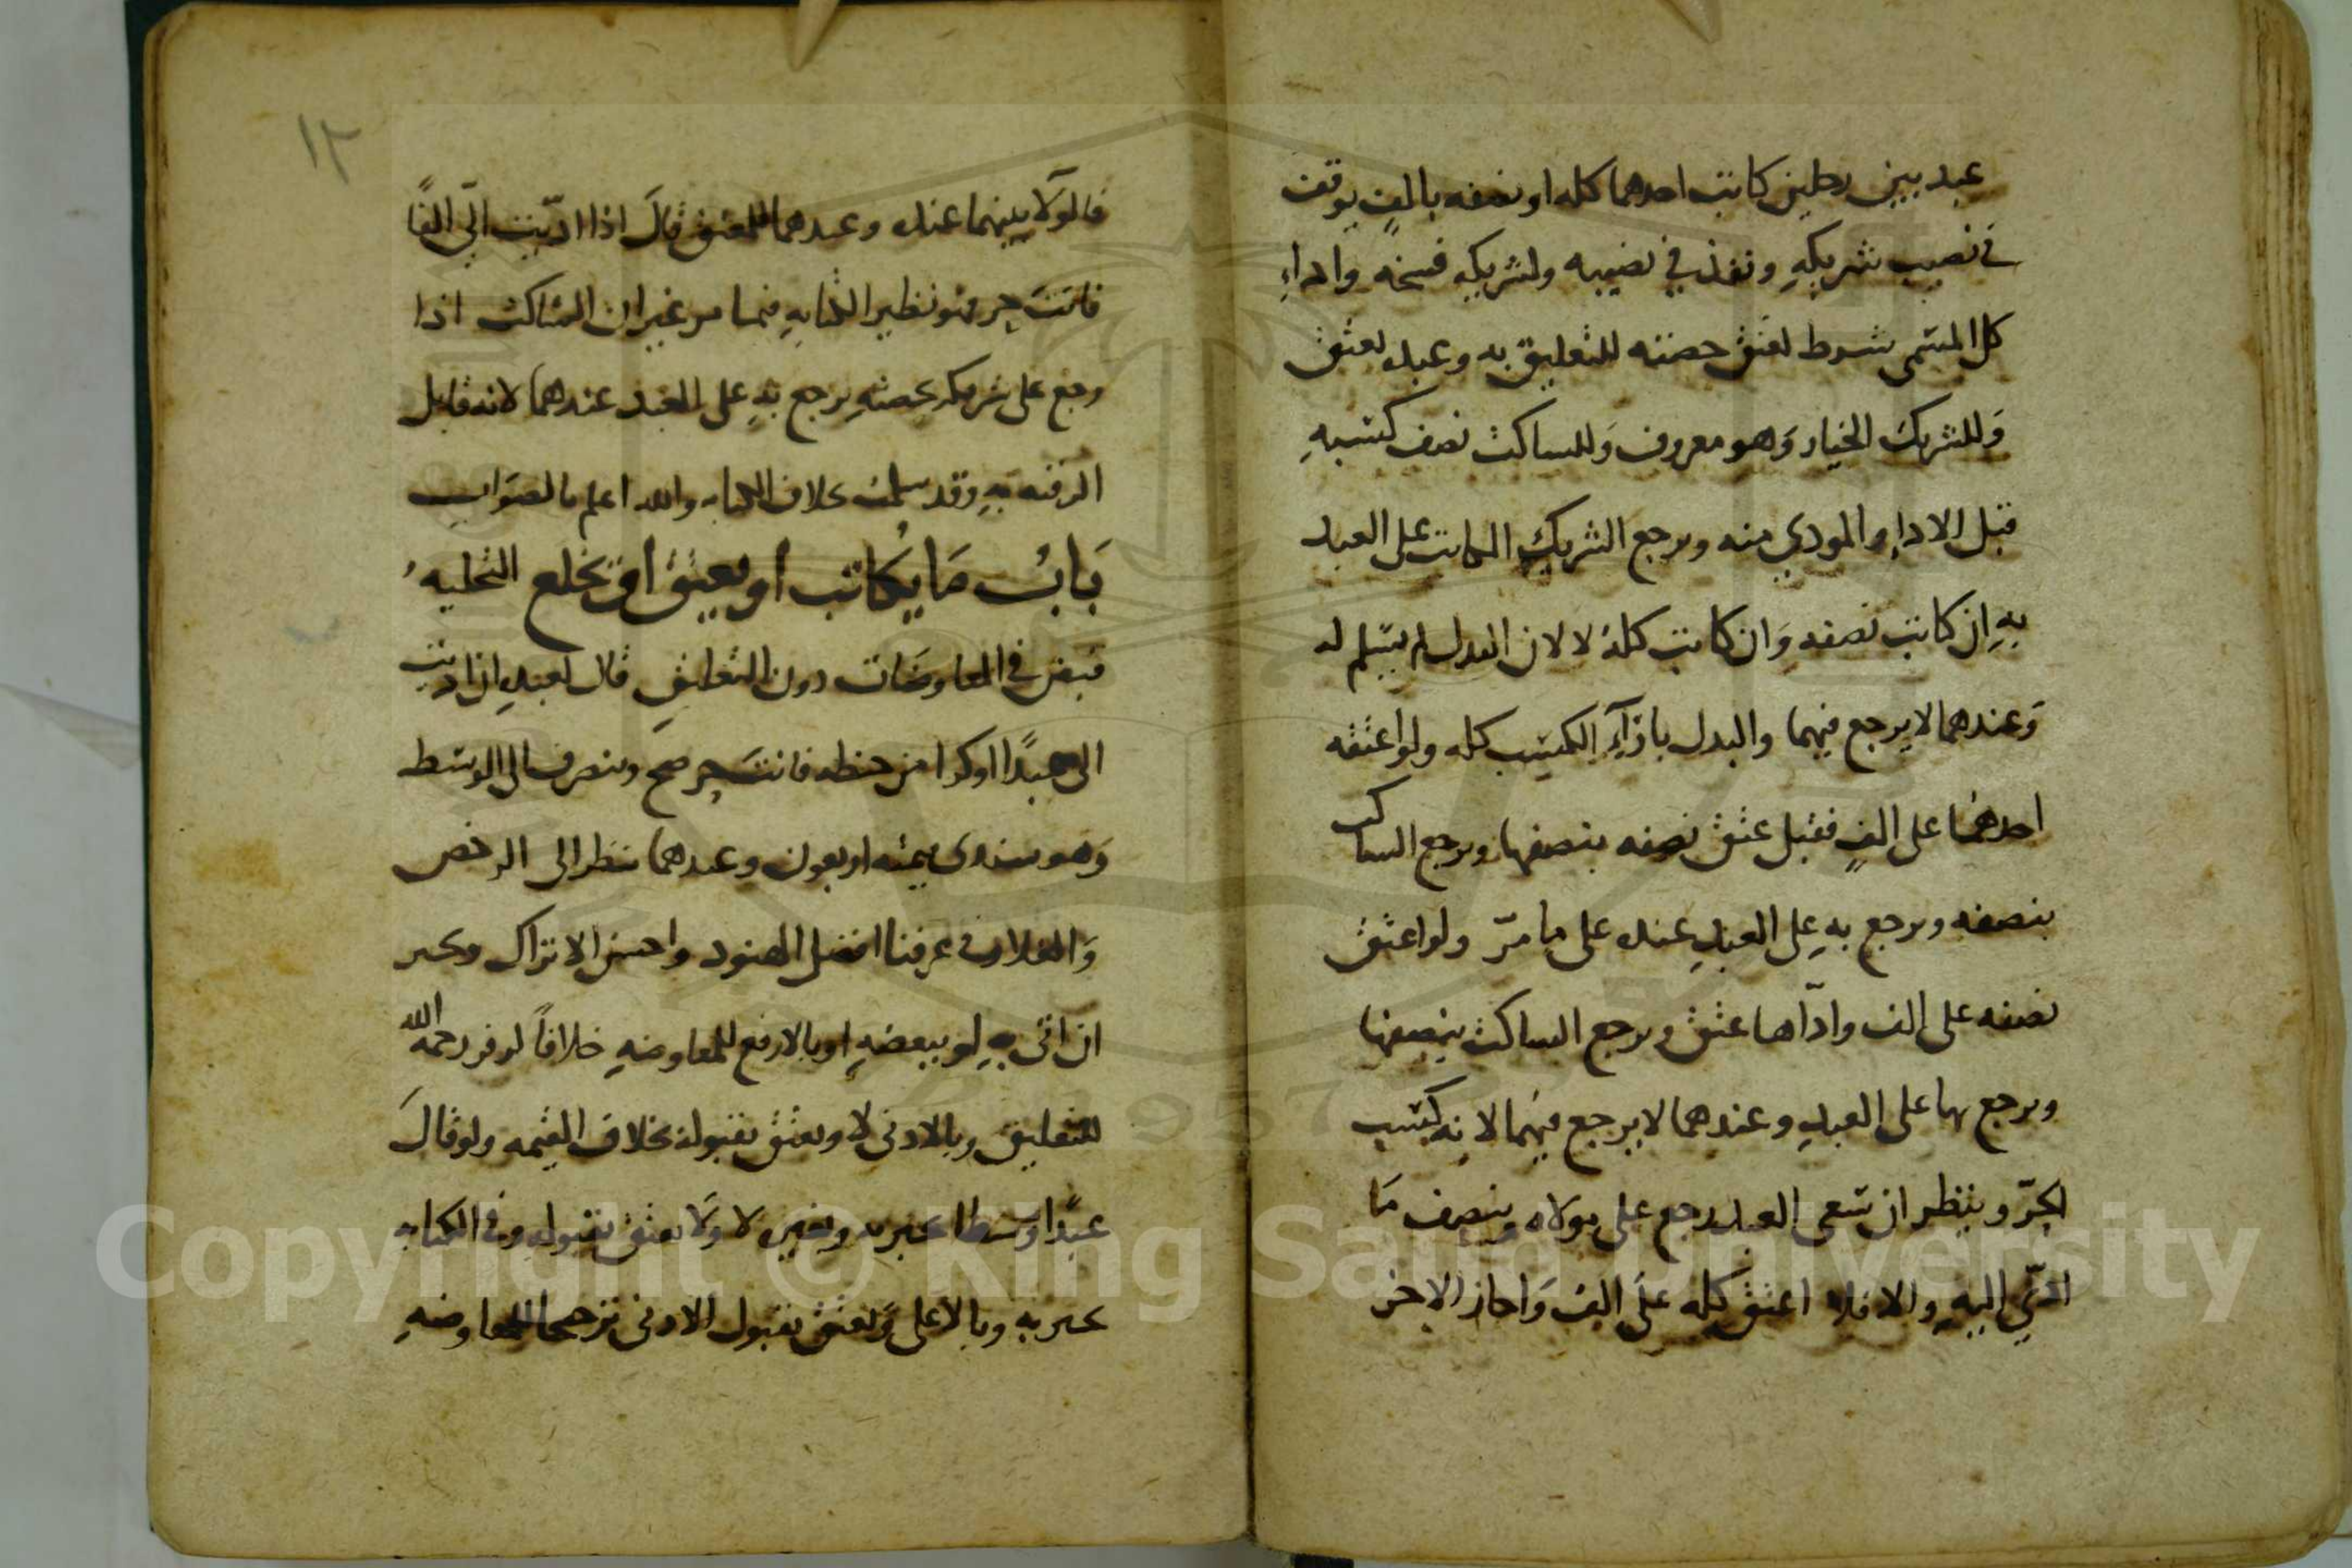 عبد بين رجلين كاتب احدهما كله او نصفه بالف يوقف
في نصيب شريكه ونفذ في نصيبه ولشريكه فسخه واداء
كل المسمى شرط لعتق حصته للتعليق به وعبده لعتق
وللشريك الخيار وهو معروف وللساكت نصف كسبه
قبل الاداء والمودي منه ويرجع الشريك المكاتب على العبد
به ان كاتب نصفه وان كاتب كله لا لان البدل لم يسلم له
وعندهما لا يرجع فيهما والبدل بازآء الكسب كله ولو اعتقه
احدهما على الف فقبل عتق نصفه بنصفها ويرجع الساكت
بنصفه ويرجع به على العبد عنده على ما مرّ ولو اعتق
نصفه على الف وادّاها عتق ويرجع الساكت بنصفها
ويرجع بها على العبد وعندهما لا يرجع فيهما لانه كسب
الحرّ وينظر ان سعى العبد رجع على مولاه وبنصف ما
ادّي اليه والا فلا اعتق كله على الف واجاز الاخر
١٢
فالولآ بينهما عنده وعندهما للمعتق قال اذا ادّيت اليّ الفًا
فانت حر فهو نظير الكتابه فيما مر غير ان الساكت اذا
رجع على شريكه بحصته يرجع به على العبد عندهما لانه قابل
الرقبه به وقد سلمت بخلاف الكتابه والله اعلم بالصواب
باب ما يكاتب او يعتق او يخلع التخليه
قبض في المعاوضات دون التعليق قال لعبده ان اديت
الي عبدًا او كرا من حنطه فانت حر صح وينصرف الى الوسط
وهو سندي قيمته اربعون وعندهما ينظر الى الرخص
والغلاء وفي عرفنا افضل الهنود واحسن الاتراك ويجبر
ان اتى به لو ببعضه او بالارفع للمعاوضه خلافاً لزفر رحمه الله
للتعليق وبالادنى لا ويعتق بقبوله بخلاف القيمه ولو قال
عبدًا وسطا يجبر به وبغيره لا ولا يعتق بقبوله وفي الكتابه
يجبر به وبالاعلى ويعتق بقبول الادنى ترجيحا للمعاوضه
Copyright © King Saud University
1957